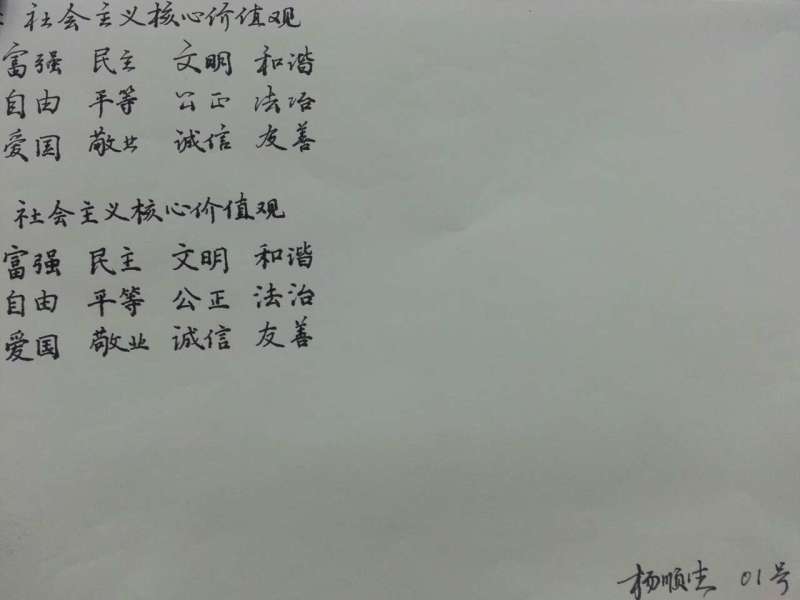 社会主义核心价值观
富强 民主 文明 和谐
自由 平等 公正 法治
爱国 敬业 诚信 友善
社会主义核心价值观
富强 民主 文明 和谐
自由 平等 公正 法治
爱国 敬业 诚信 友善
杨顺 01号